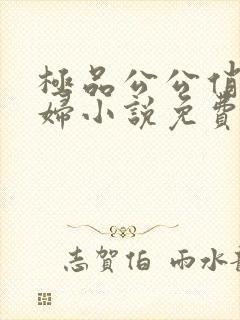 極品公公俏
婦小說免費
志賀伯 雨水